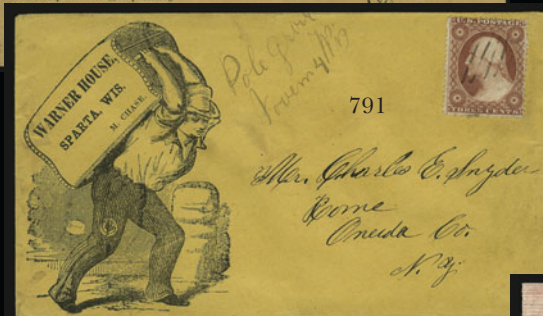 WARNER HOUSE,
SPARTA, WIS.
M. CHASE.
Pole Grove
791
U.S. POSTAGE
THREE CENTS
Mr. Charles E. Snyder
Rome
Oneida Co.
N. Y.